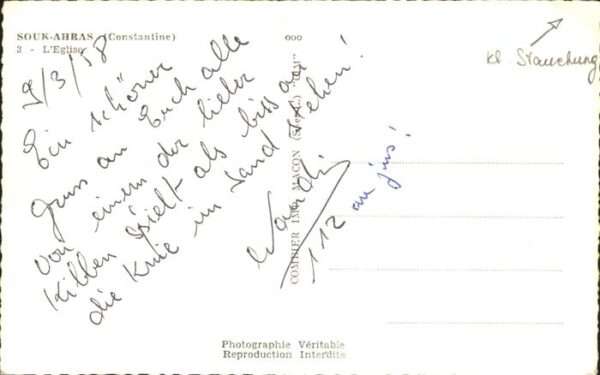 SOUK-AHRAS (Constantine)
2 - L'Eglise
ooo
kl. Stauchung
9/3/58
Ein schöner
gruss an Euch alle
von einem der lieber
Kibben spielt als biss an
die Knie im Sand stehen!
112 au jus!
COMBIER IMP. MACON
Photographie Véritable
Reproduction Interdite